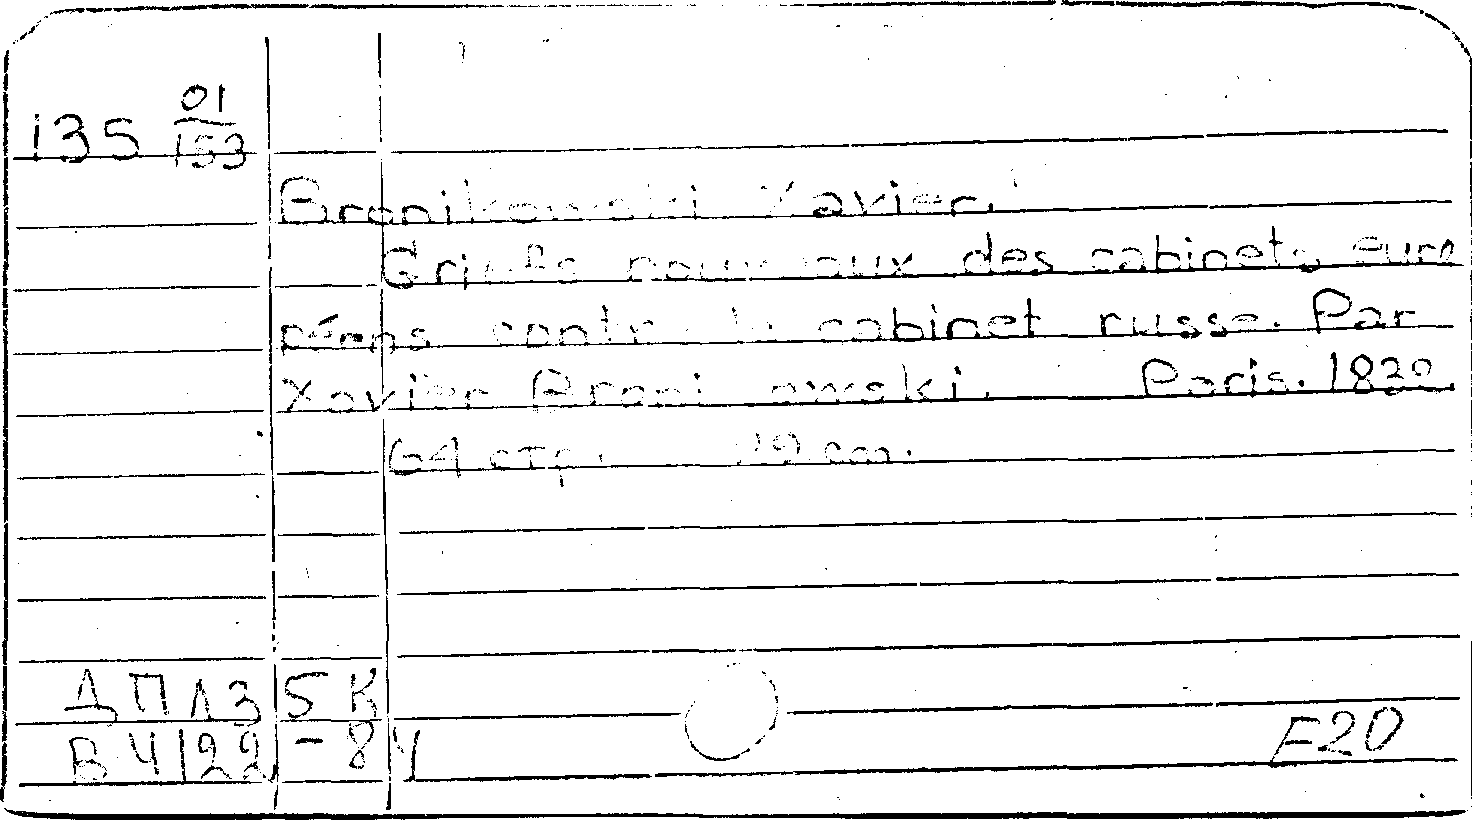 135 01/153
Bronikowski Xavier.
Griefs nouveaux des cabinets euro
péens contre le cabinet russe. Par
Xavier Bronikowski. Paris. 1830.
64 стр. 19 cm.
ДПЛЗ 5К
В4122-84
F20